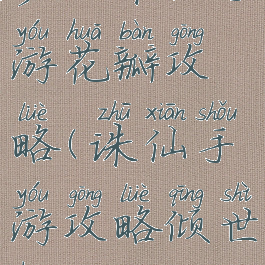 yóu huā bàn gōng
游花瓣攻
lüè zhū xiān shǒu
略(诛仙手
yóu gōng lüè qīng shì
游攻略倾世